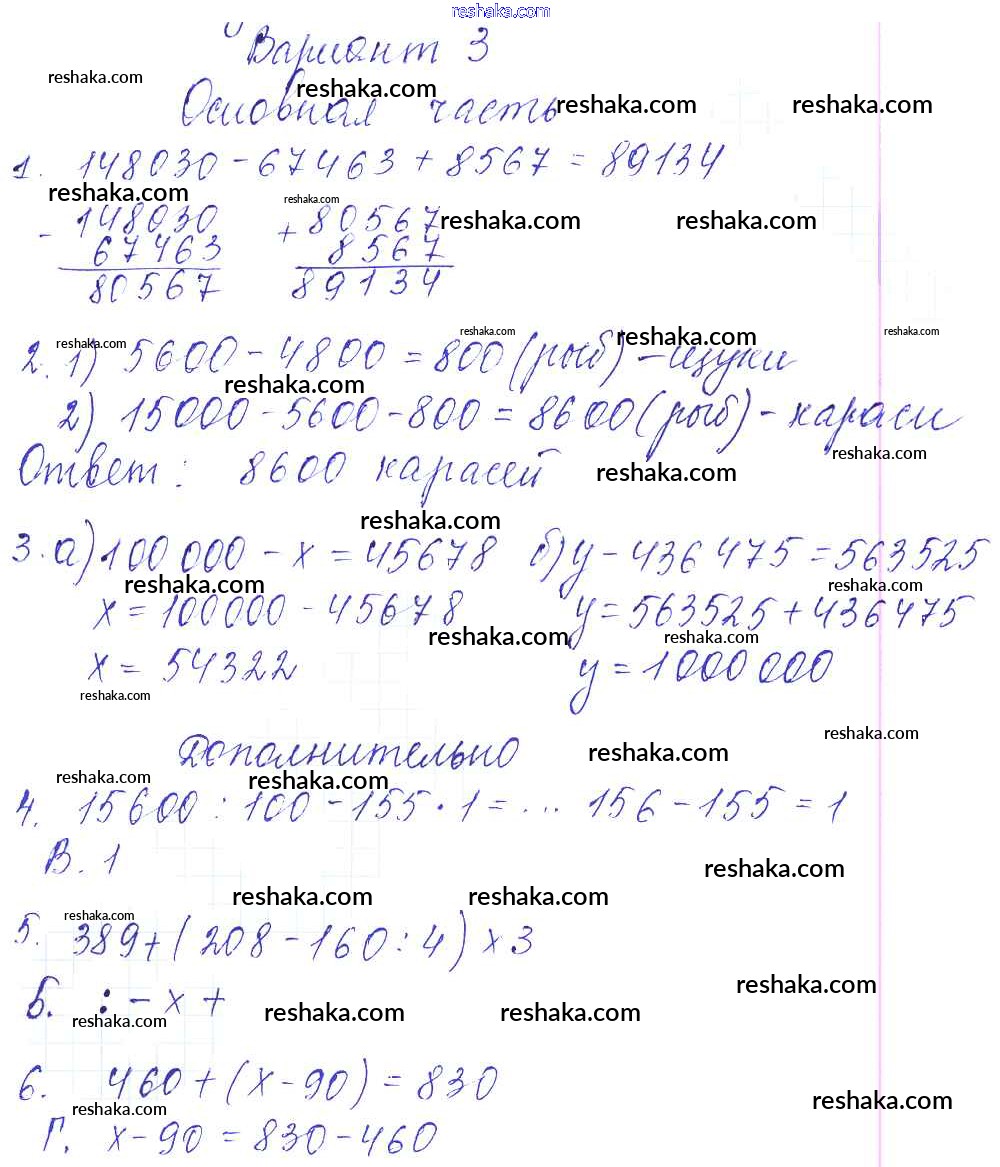 reshaka.com
Вариант 3
reshaka.com
reshaka.com
Основная часть
reshaka.com
reshaka.com
1. 148030 - 67463 + 8567 = 89134
reshaka.com
- 148030 + 80567
reshaka.com
reshaka.com
67463 8567
80567 89134
reshaka.com
reshaka.com
reshaka.com
reshaka.com
2. 1) 5600 - 4800 = 800 (рыб) - щуки
reshaka.com
2) 15000 - 5600 - 800 = 8600 (рыб) - караси
reshaka.com
Ответ: 8600 карасей
reshaka.com
reshaka.com
3. а) 100 000 - x = 45678 б) y - 436 475 = 563525
reshaka.com
reshaka.com
x = 100000 - 45678 y = 563525 + 436475
reshaka.com
reshaka.com
x = 54322 y = 1000 000
reshaka.com
reshaka.com
Дополнительно
reshaka.com
reshaka.com
reshaka.com
4. 15600 : 100 - 155 · 1 = ... 156 - 155 = 1
В. 1
reshaka.com
reshaka.com
reshaka.com
reshaka.com
5. 389 + (208 - 160 : 4) x 3
reshaka.com
Б. : - x +
reshaka.com
reshaka.com
reshaka.com
6. 460 + (x - 90) = 830
reshaka.com
reshaka.com
Г. x - 90 = 830 - 460